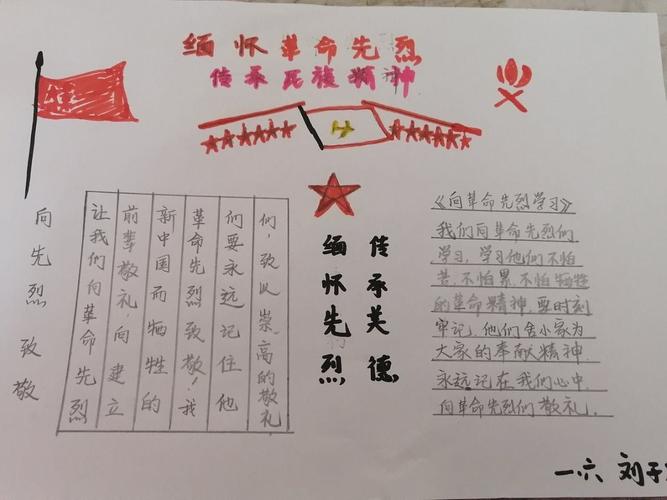 缅怀革命先烈
传承民族精神
向先烈致敬
让我们向革命先烈
前辈敬礼,向建立
新中国而牺牲的
革命先烈致敬!我
们要永远记住他
们,致以崇高的敬礼
缅怀先烈
传承美德
《向革命先烈学习》
我们向革命先烈们
学习,学习他们不怕
苦、不怕累、不怕牺牲
的革命精神,要时刻
牢记,他们舍小家为
大家的奉献精神,
永远记在我们心中,
向革命先烈们敬礼。
一.六 刘子